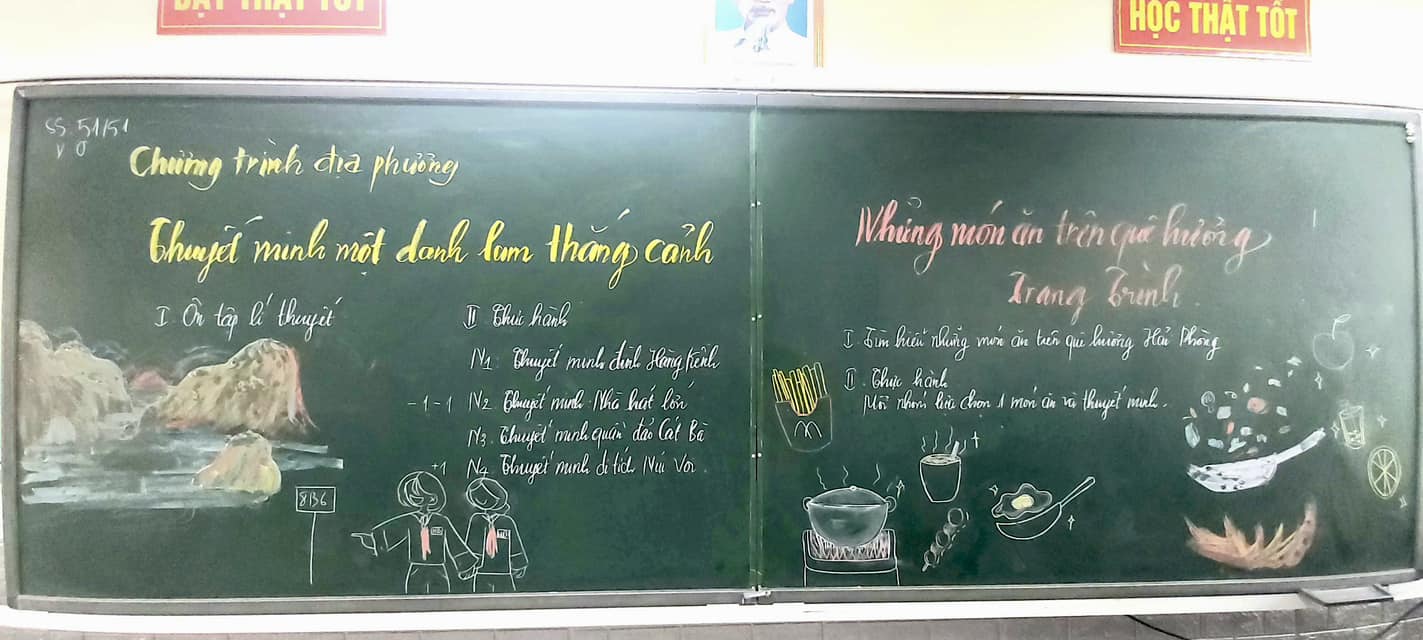 DẠY THẬT TỐT
HỌC THẬT TỐT
SS 51/51
V 0
Chương trình địa phương
Thuyết minh một danh lam thắng cảnh
I. Ôn tập lí thuyết
II Thực hành
N1: Thuyết minh đình Hàng Kênh
-1-1 N2 Thuyết minh Nhà hát lớn
N3. Thuyết minh quần đảo Cát Bà
+1 N4. Thuyết minh di tích Núi Voi.
8B6
Những món ăn trên quê hương
Trạng Trình.
I. Tìm hiểu những món ăn trên quê hương Hải Phòng
II. Thực hành
Mỗi nhóm lựa chọn 1 món ăn và thuyết minh.